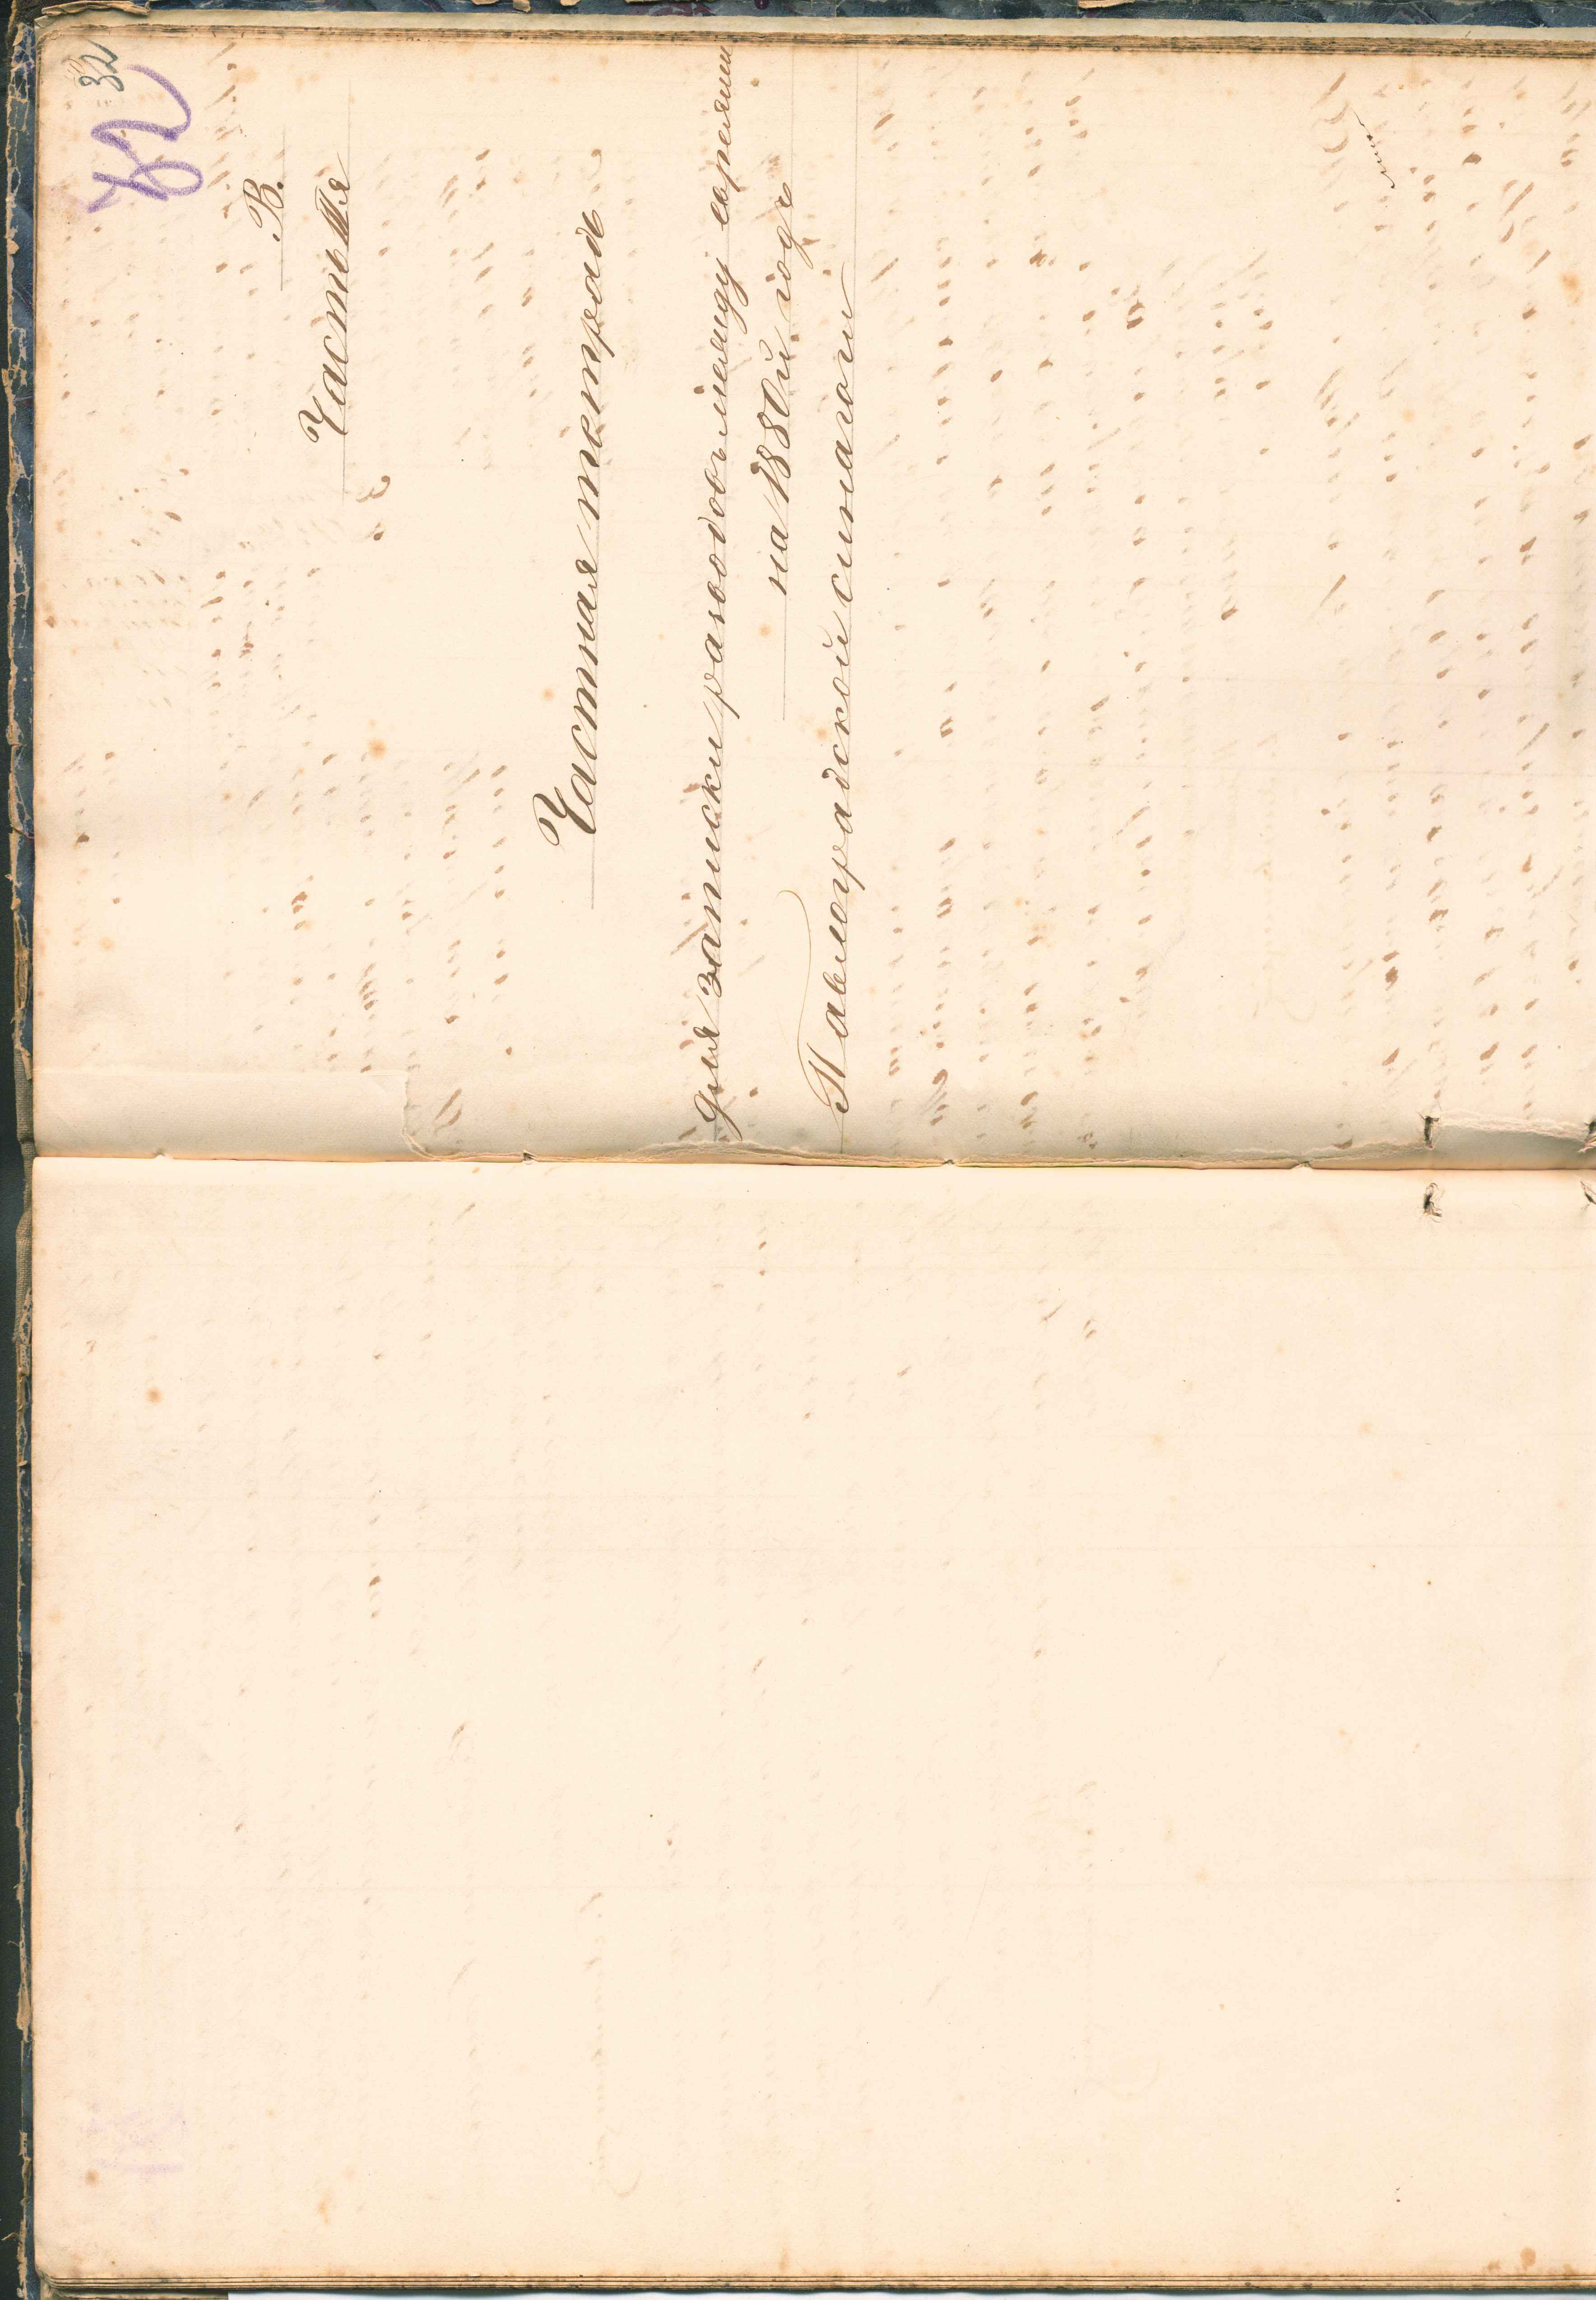 32
В.
Часть IIIя
Частная тетрадь
для записки разводовъ между евреями
на 1880й годъ
Павлоградской синагоги